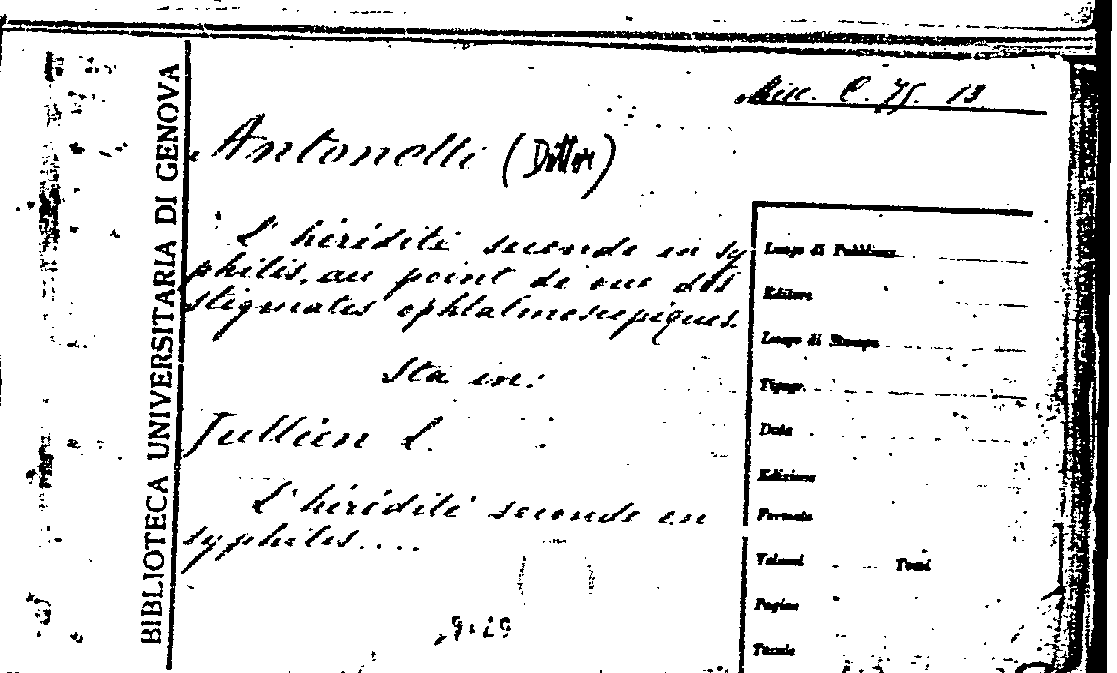 BIBLIOTECA UNIVERSITARIA DI GENOVA
Misc. C. 75. 13.
Antonelli (Dottor)
L'hérédité seconde en sy
philis, au point de vue des
stigmates ophtalmoscopiques.
Sta in:
Jullien L.
L'hérédité seconde en
syphilis....
Luogo di Pubblicaz.
Editore
Luogo di Stampa
Tipogr.
Data
Edizione
Formato
Volumi Tomi
Pagine
Tavole